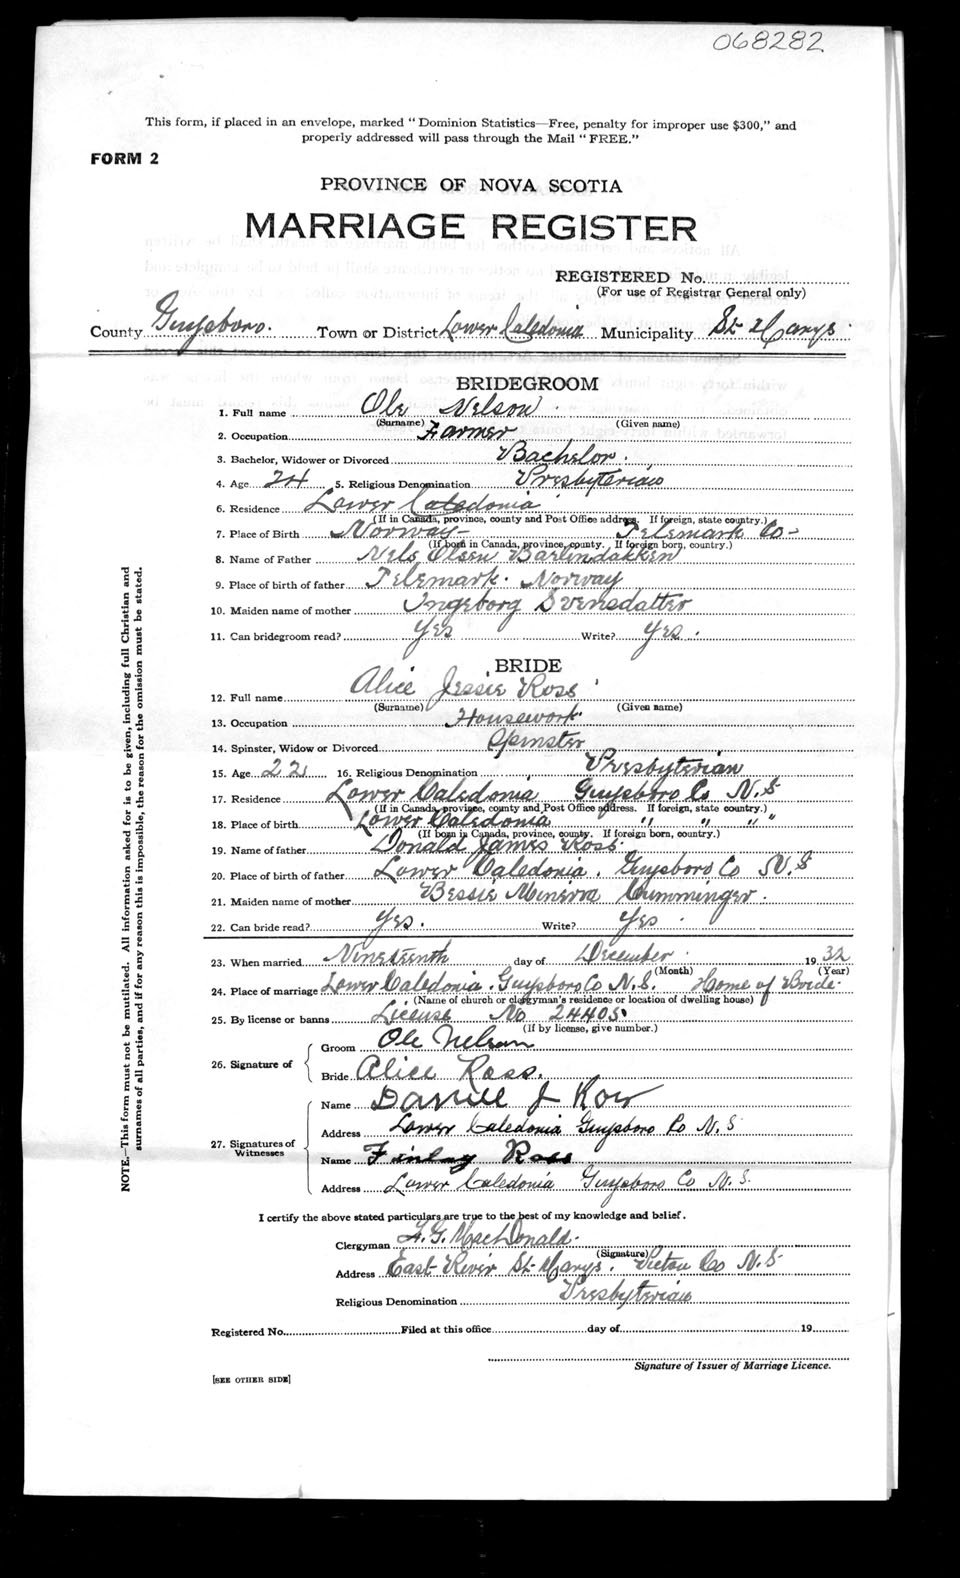 068282
This form, if placed in an envelope, marked " Dominion Statistics—Free, penalty for improper use $300," and
properly addressed will pass through the Mail " FREE."
FORM 2
PROVINCE OF NOVA SCOTIA
MARRIAGE REGISTER
REGISTERED No.
(For use of Registrar General only)
County Guysboro. Town or District Lower Caledonia Municipality St Marys.
BRIDEGROOM
1. Full name Ole Nelson
(Surname) (Given name)
2. Occupation Farmer
3. Bachelor, Widower or Divorced Bachelor.
4. Age 24 5. Religious Denomination Presbyterian
6. Residence Lower Caledonia
(If in Canada, province, county and Post Office address. If foreign, state country.)
7. Place of Birth Norway— Telemark Co—
(If born in Canada, province, county. If foreign born, country.)
8. Name of Father Nels Olsen
9. Place of birth of father Telemark. Norway
10. Maiden name of mother Ingeborg Svensdatter
11. Can bridegroom read? Yes Write? Yes.
BRIDE
12. Full name Alice Jessie Ross
(Surname) (Given name)
13. Occupation Housework.
14. Spinster, Widow or Divorced Spinster
15. Age 22 16. Religious Denomination Presbyterian
17. Residence Lower Caledonia Guysboro Co N.S
(If in Canada, province, county and Post Office address. If foreign, state country.)
18. Place of birth Lower Caledonia " " " "
(If born in Canada, province, county. If foreign born, country.)
19. Name of father Donald James Ross.
20. Place of birth of father Lower Caledonia. Guysboro Co N.S
21. Maiden name of mother Bessie Minerva Cumminger.
22. Can bride read? Yes. Write? Yes.
23. When married Nineteenth day of December 1932
(Month) (Year)
24. Place of marriage Lower Caledonia. Guysboro Co N.S. Home of Bride.
(Name of church or clergyman's residence or location of dwelling house)
25. By license or banns License No 24405
(If by license, give number.)
26. Signature of
Groom Ole Nelson
Bride Alice Ross.
27. Signatures of Witnesses
Name J
Address Lower Caledonia Guysboro Co N.S
Name Finlay Ross
Address Lower Caledonia Guysboro Co N.S.
I certify the above stated particulars are true to the best of my knowledge and belief.
Clergyman A.G. MacDonald.
(Signature)
Address East River St Marys. Pictou Co N.S
Religious Denomination Presbyterian
Registered No. Filed at this office day of 19
Signature of Issuer of Marriage Licence.
[SEE OTHER SIDE]
NOTE.—This form must not be mutilated. All information asked for is to be given, including full Christian and
surnames of all parties, and if for any reason this is impossible, the reason for the omission must be stated.